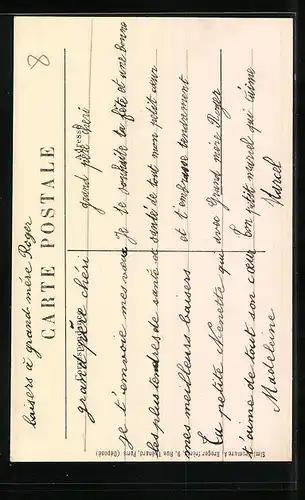 8
baisers à grand mère Roger
CARTE POSTALE
Correspondance
grand père chéri
je t'envoie mes vœux
les plus tendres de santé et
mes meilleurs baisers
Ta petite Nenette qui
t'aime de tout son cœur
Madeleine
Adresse
grand père chéri
Je te souhaite ta fête et une bonne
santé de tout mon petit cœur
et t'embrasse tendrement
avec Grand mère Roger
ton petit marcel qui t'aime
Marcel
Breger frères, 9, Rue Thénard, Paris (Déposé)